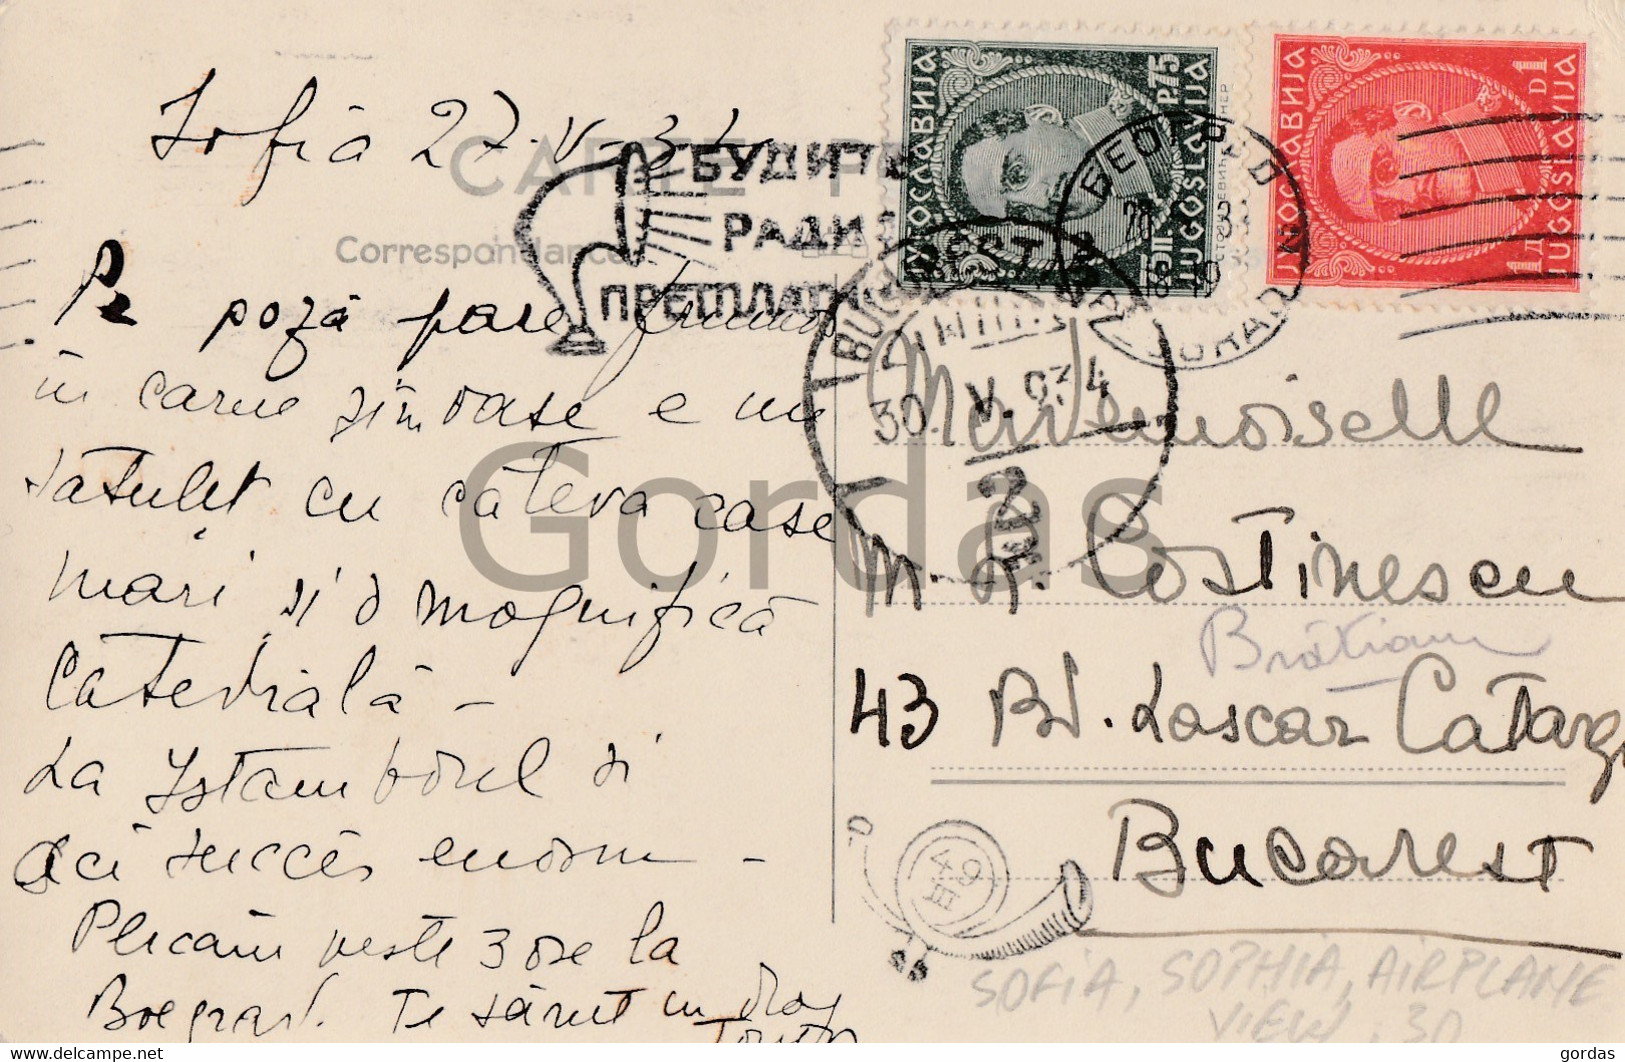 Sofia 27-V-34
CARTE PO
Correspondance
БУДИТЕ
РАДИО
ПРЕТПЛАТНИ
Pe poză pare frumos
în carne și în oase e un
sătuleț cu câteva case
mari și o magnifică
Catedrală -
La Istamboul și
aci succès enorm -
Plecăm peste 3 ore la
Boegrad. Te sărut cu drag
ЈУГОСЛАВИЈА
P.75
75П.
JUGOSLAVIJA
ЈУГОСЛАВИЈА
1 D
1 Д
JUGOSLAVIJA
БЕОГРАД
BEOGRAD
BUCUREST
30 V. 934
Mademoiselle
M. R. Costinescu
Brătianu
43 Bd. Lascar Catargi
Bucarest
49
SOFIA, SOPHIA, AIRPLANE
VIEW, 30
Gordas
www.delcampe.net
gordas